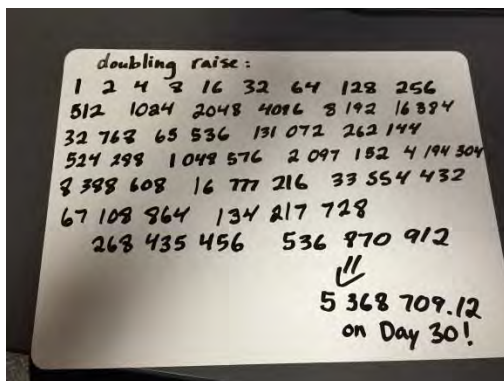 doubling raise:
1 2 4 8 16 32 64 128 256
512 1024 2048 4096 8 192 16 384
32 768 65 536 131 072 262 144
524 298 1 048 576 2 097 152 4 194 304
8 388 608 16 777 216 33 554 432
67 108 864 134 217 728
268 435 456 536 870 912
5 368 709.12
on Day 30!